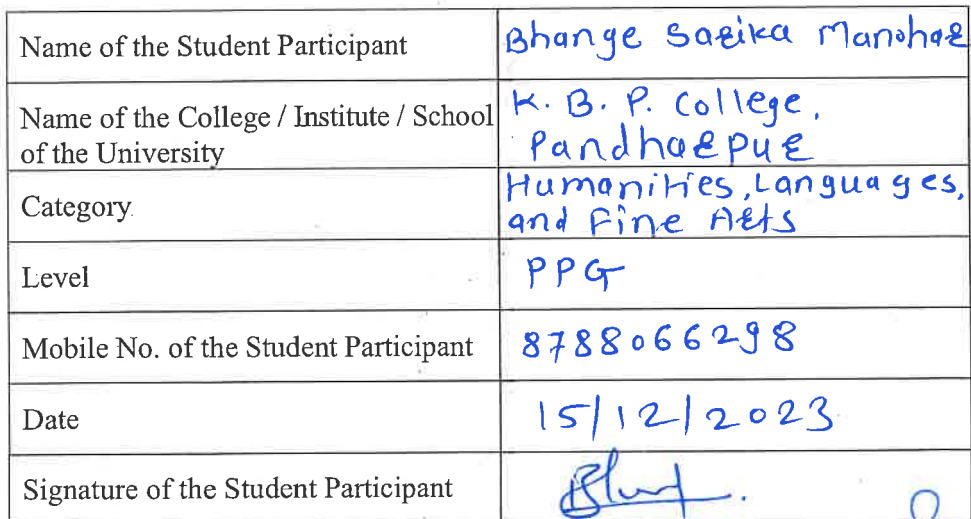 Name of the Student Participant Bhange Sarika Manohar
Name of the College / Institute / School K. B. P. College,
of the University Pandharpur
Category Humanities, Languages,
and Fine Arts
Level PPG
Mobile No. of the Student Participant 8788066298
Date 15/12/2023
Signature of the Student Participant